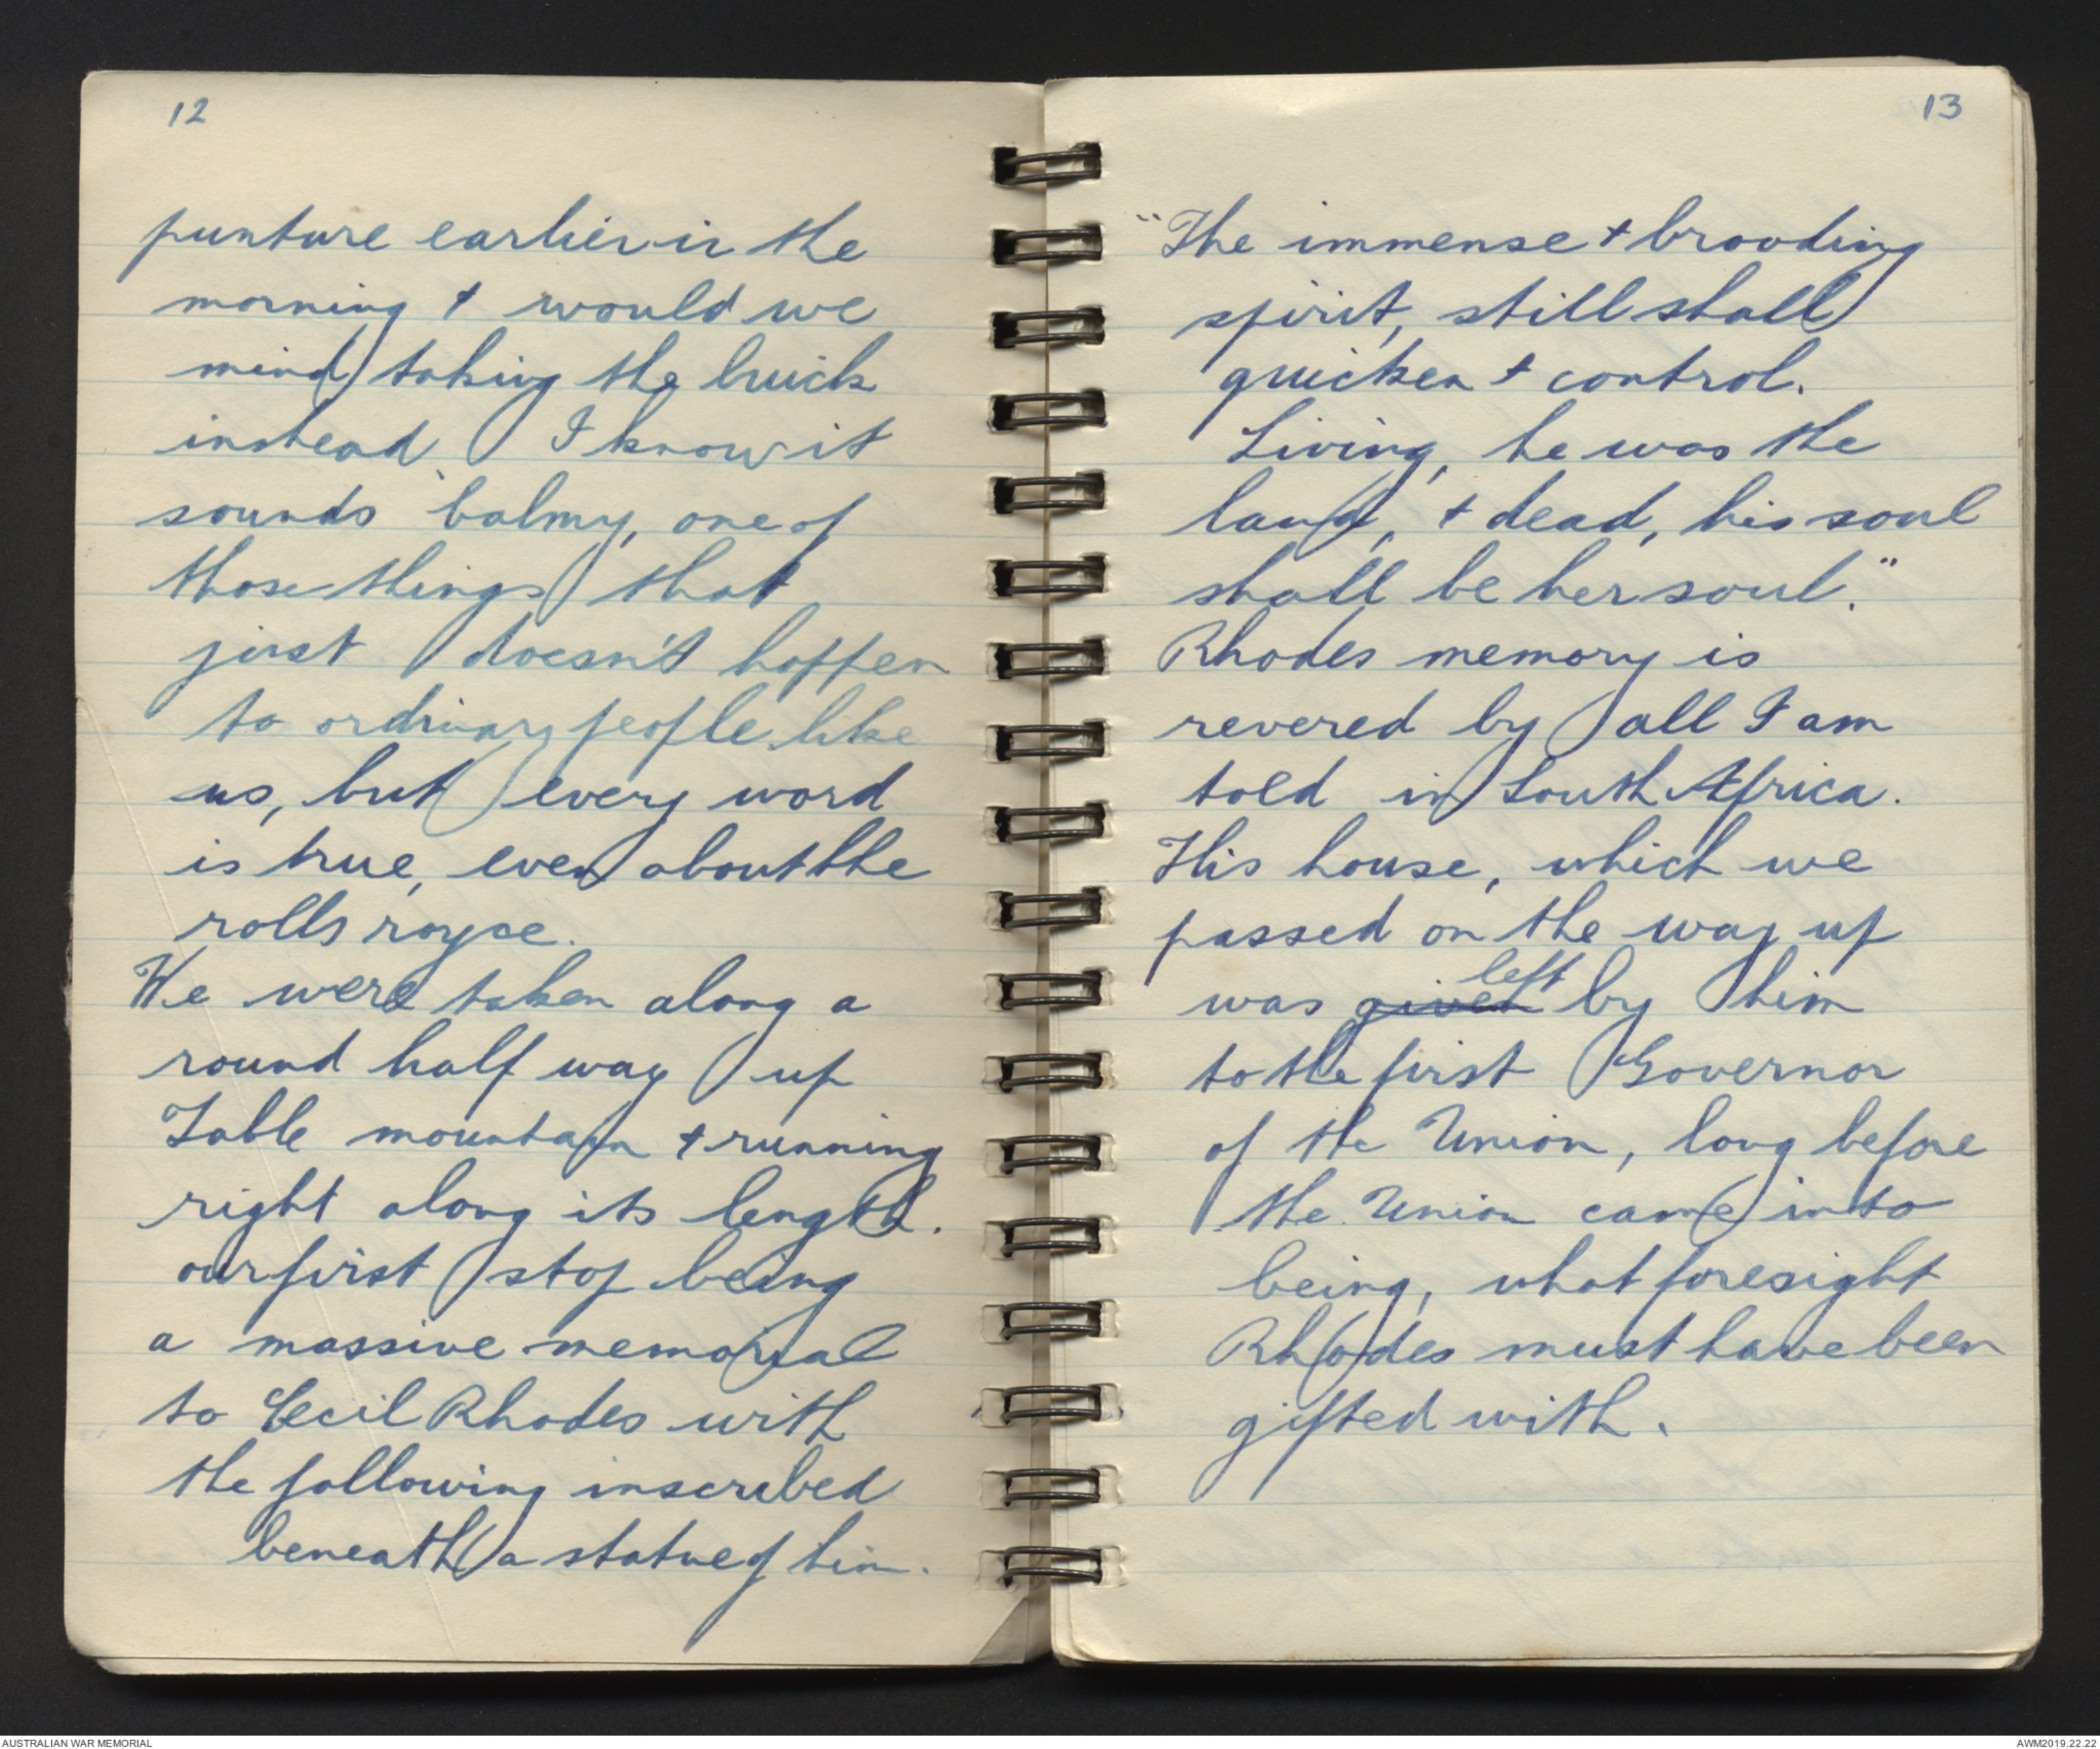 12
punture earlier in the
morning + would we
mind taking the buick
instead. I know it
sounds balmy, one of
those things that
just doesn't happen
to ordinary people like
us, but every word
is true, even about the
rolls royce.
We were taken along a
round half way up
Table mountain + running
right along its length.
our first stop being
a massive memorial
to Cecil Rhodes with
the following inscribed
beneath a statue of him.
13
"The immense + brooding
spirit, still shall
quicken + control.
Living, he was the
land, + dead, his soul
shall be her soul."
Rhodes memory is
revered by all I am
told in South Africa.
His house, which we
passed on the way up
was given left by him
to the first Governor
of the Union, long before
the Union came into
being, what foresight
Rhodes must have been
gifted with.
AUSTRALIAN WAR MEMORIAL
AWM2019.22.22